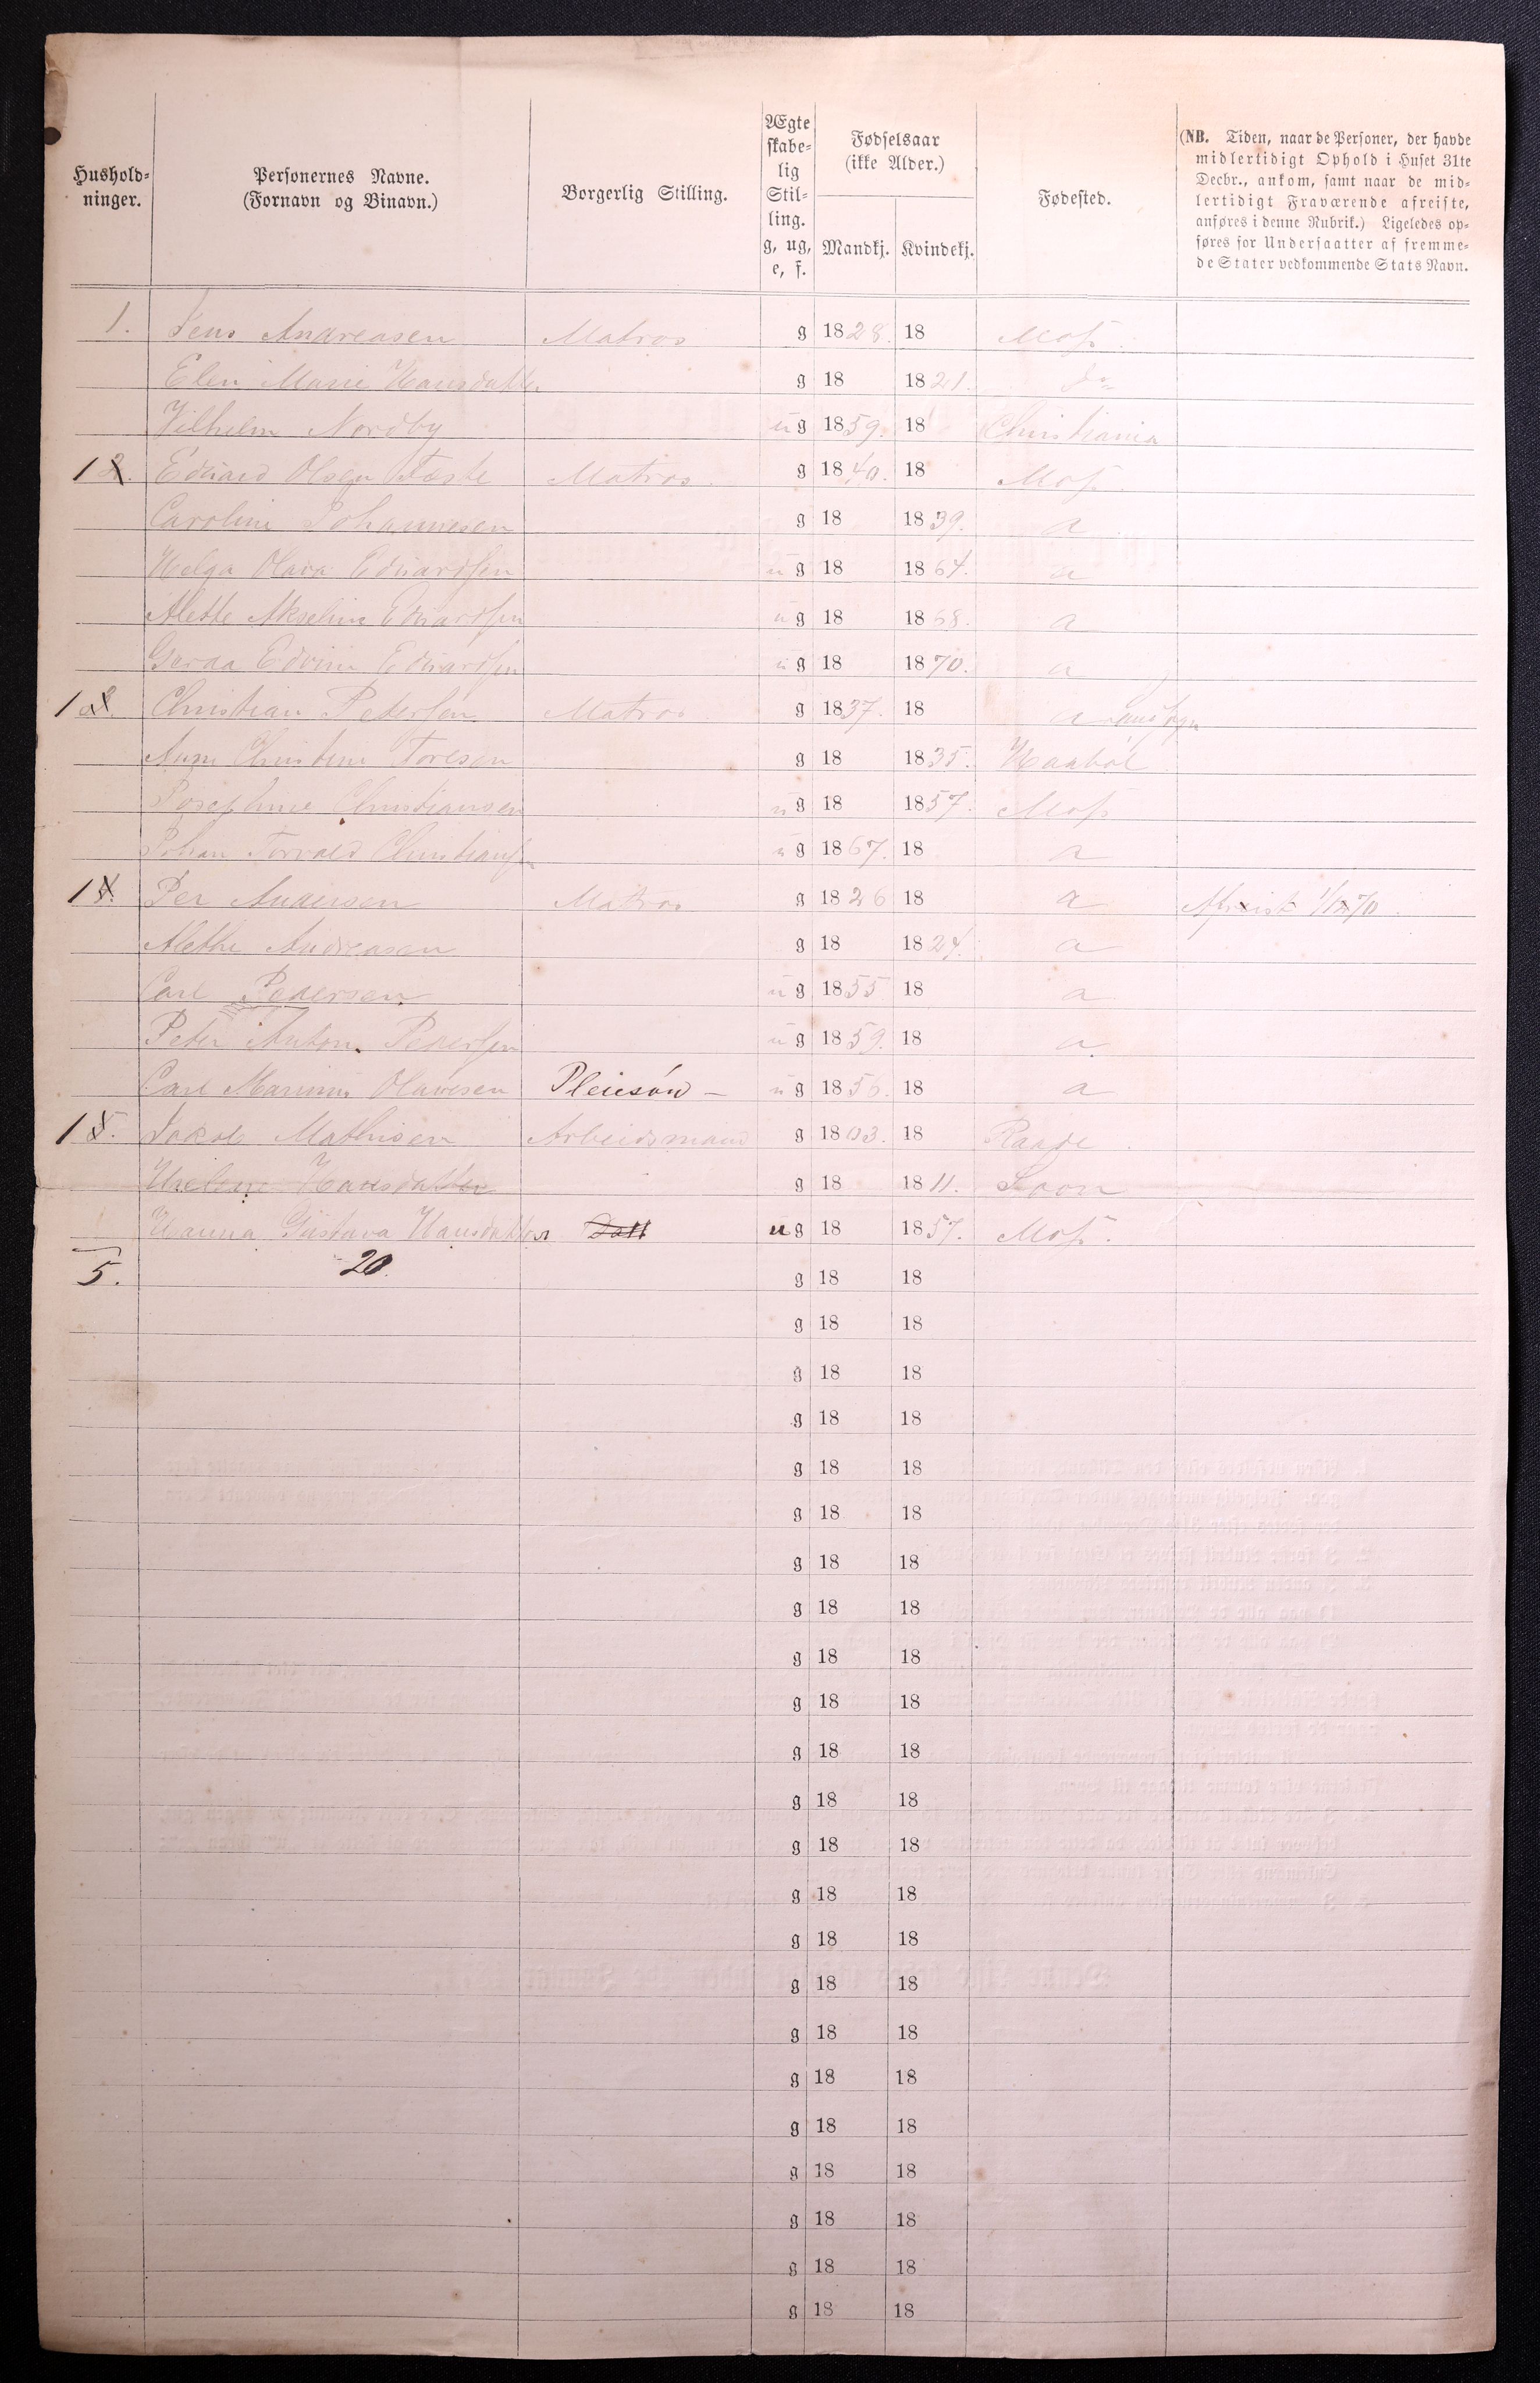 Hushold-
ninger.
Personernes Navne.
(Fornavn og Binavn.)
Borgerlig Stilling.
Ægte
skabe-
lig
Stil-
ling.
g, ug,
e, f.
Fødselsaar
(ikke Alder.)
Mandkj. Kvindekj.
Fødested.
(NB. Tiden, naar de Personer, der havde
midlertidigt Ophold i Huset 31te
Decbr., ankom, samt naar de mid-
lertidigt Fraværende afreiste,
anføres i denne Rubrik.) Ligeledes op-
føres for Undersaatter af fremme-
de Stater vedkommende Stats Navn.
1. Jens Andreasen Matros g 1828. 18 Moss.
Elen Marie Hansdatter g 18 1821. do
Vilhelm Nordby ug 1859. 18 Christiania
1 2. Edvard Olsen Matros. g 1840. 18 Moss
Caroline Johannesen g 18 1839. a
Helga Olava Edvardsen ug 18 1864. a
Alette Akseline Edvardsen ug 18 1868. a
Gerda Edvine Edvardsen ug 18 1870. a
1 3. Christian Pedersen Matros g 1837. 18 a Landsogn
Anne Christine Toresen g 18 1835. Haabøl
Josephine Christiansen ug 18 1857. Moss
Johan Torvald Christiansen ug 1867. 18 a
1 4. Per Andersen Matros g 1826 18 a Afreist 1/12 70.
Alethe Andreasen g 18 1824. a
Carl Pedersen ug 1855 18 a
Peter Anton Pedersen ug 1859. 18 a
Carl Marinius Olavesen Pleiesøn — ug 1856. 18 a
1 5. Jakob Mathisen Arbeidsmand g 1803. 18 Raade.
Hansdatter g 18 1811. Soon
Hanna Gustava Hansdatter Datt ug 18 1857. Moss.
5. 20. g 18 18
g 18 18
g 18 18
g 18 18
g 18 18
g 18 18
g 18 18
g 18 18
g 18 18
g 18 18
g 18 18
g 18 18
g 18 18
g 18 18
g 18 18
g 18 18
g 18 18
g 18 18
g 18 18
g 18 18
g 18 18
g 18 18
g 18 18